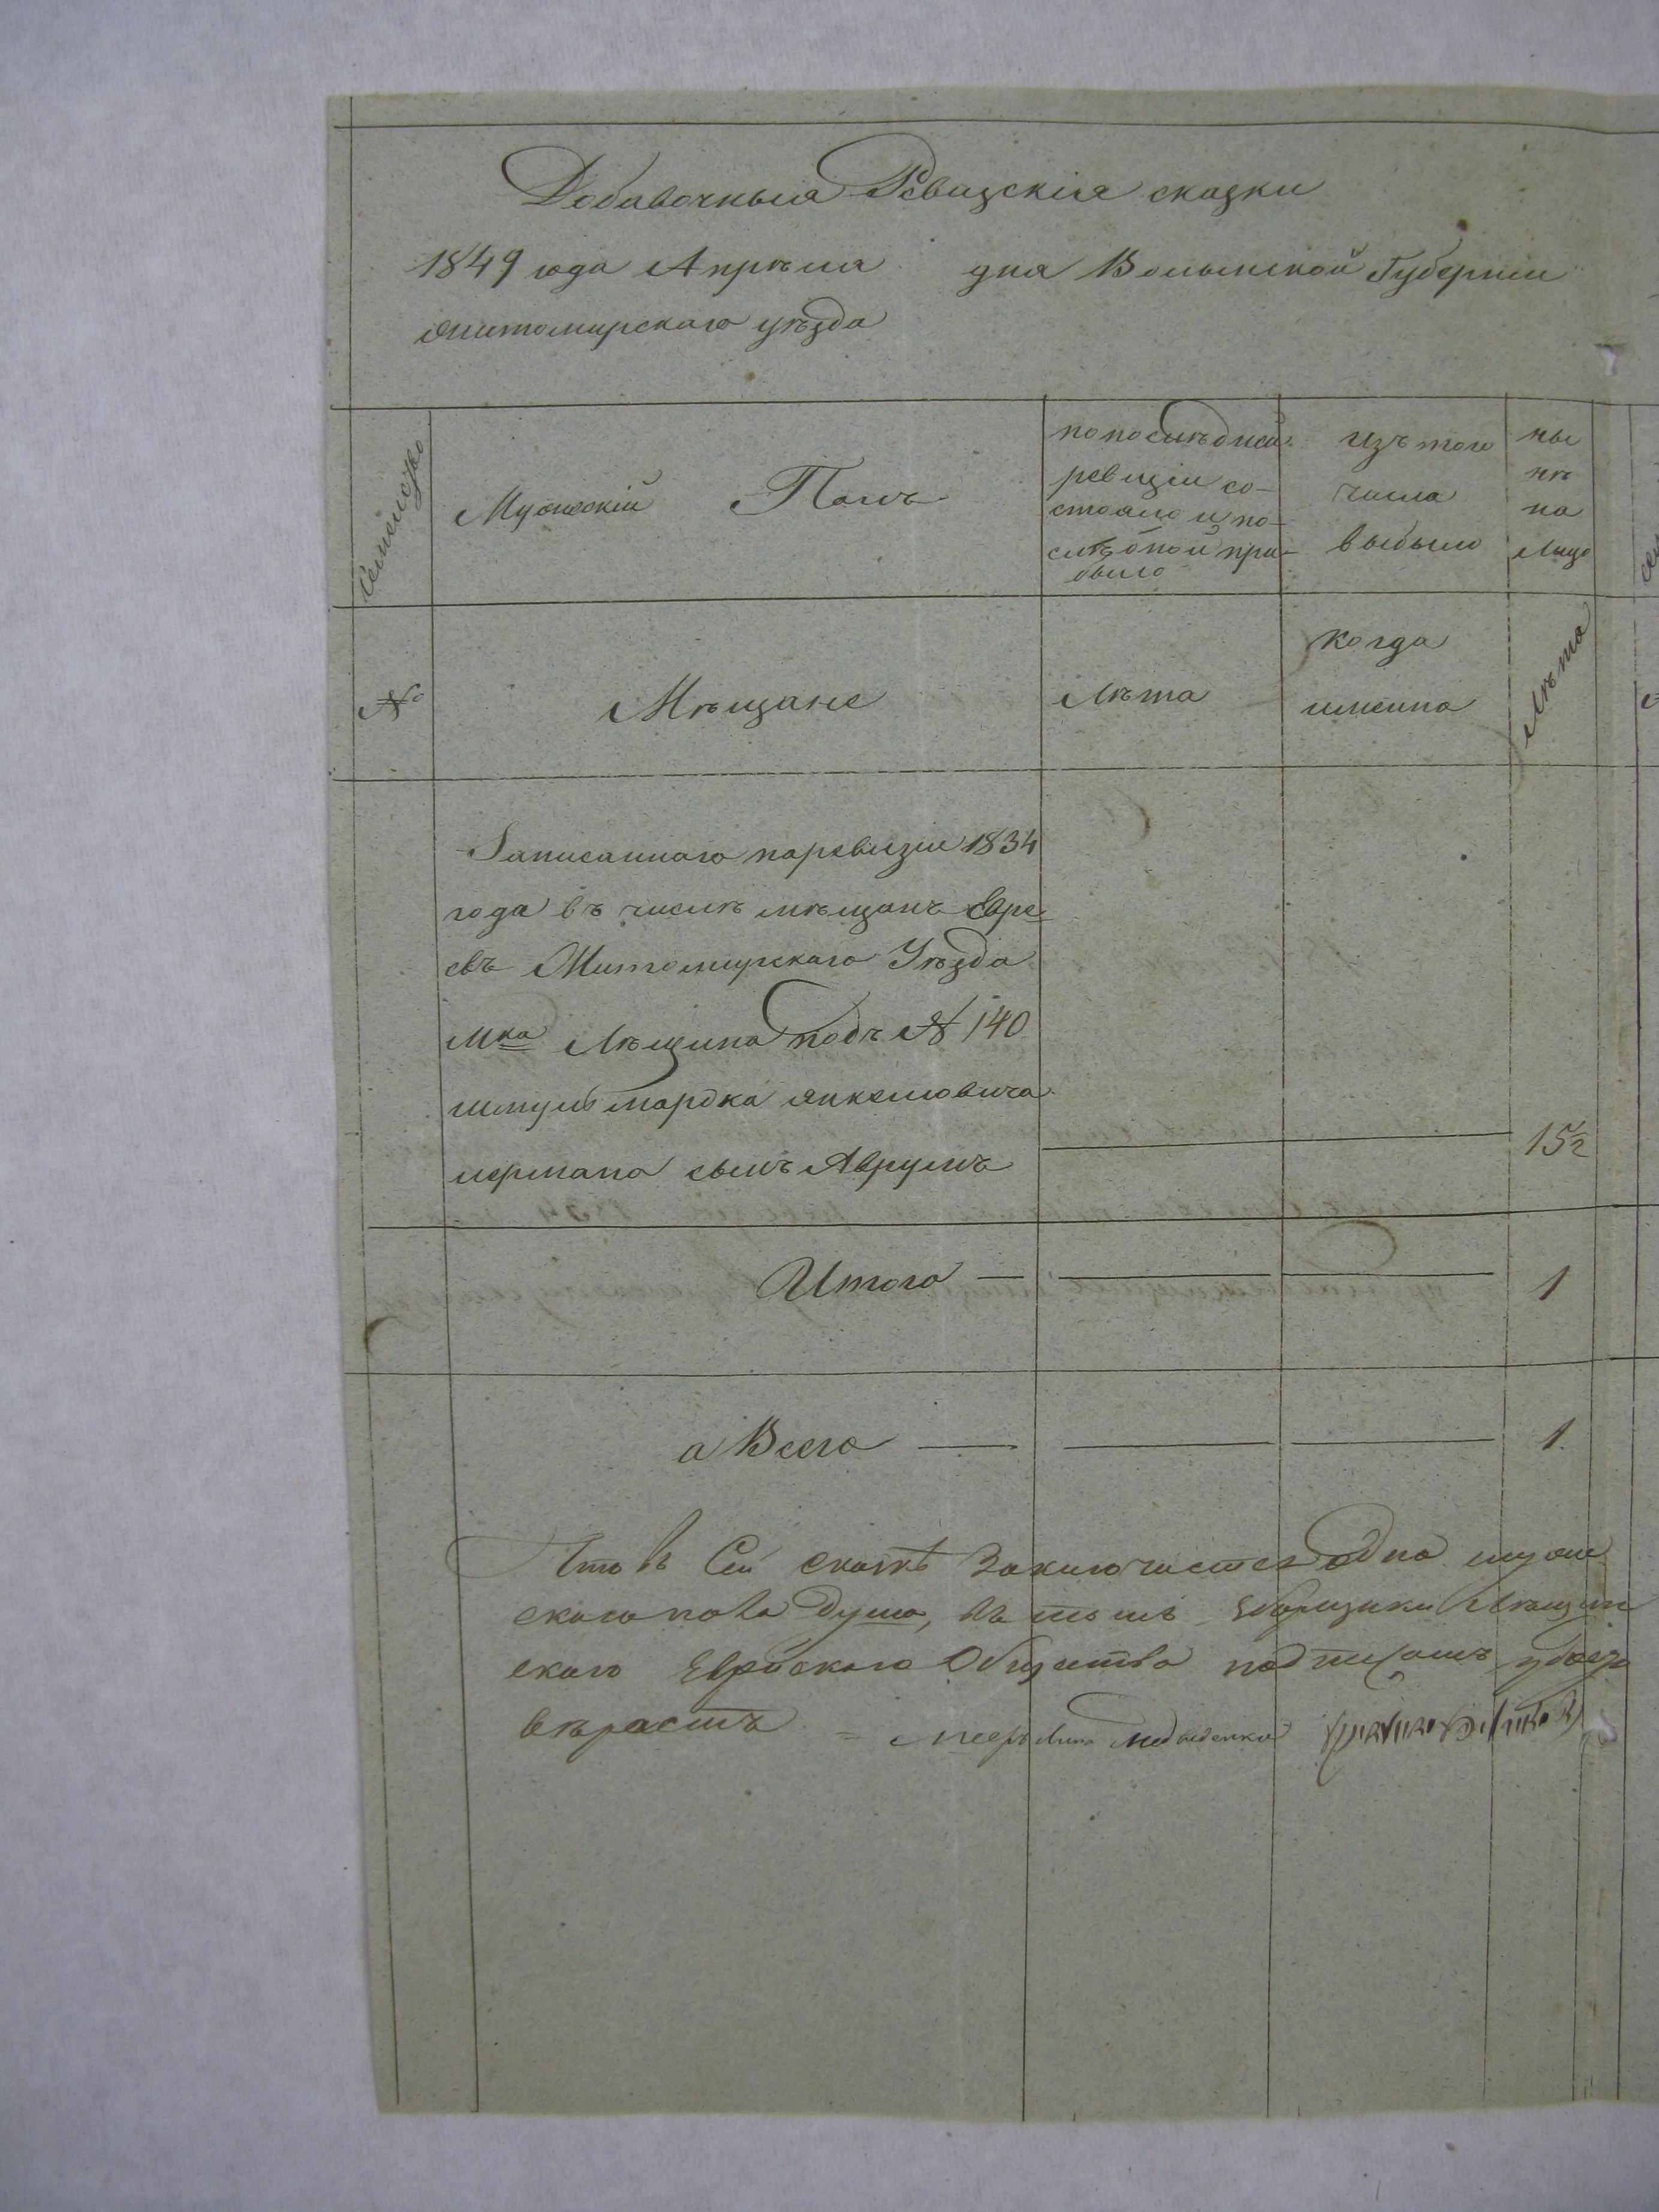 Добавочныя Ревизскія сказки
1849 года Апрѣля дня Волынской Губерніи
житомирскаго уѣзда
Семейство
Мужескій Полъ
по послѣдней
ревизіи со-
стояло и по-
слѣ оной при-
было
Изъ того
числа
выбыло
ны
нѣ
на
лицо
№
Мѣщане
Лѣта
когда
именно
Лѣта
Записаннаго по ревизіи 1834
года въ числѣ мѣщанъ Евре
евъ Житомирскаго Уѣзда
мка Лѣщина подъ № 140
шмуль мардка янкелювича
сынъ Аврумъ
15½
Итого — 1
а Всего — 1.
Что въ Сей сказкѣ Заключается одна муже
скаго пола душа, въ томъ Зборщики Лѣщин
скаго Еврейскаго Общества подписомъ